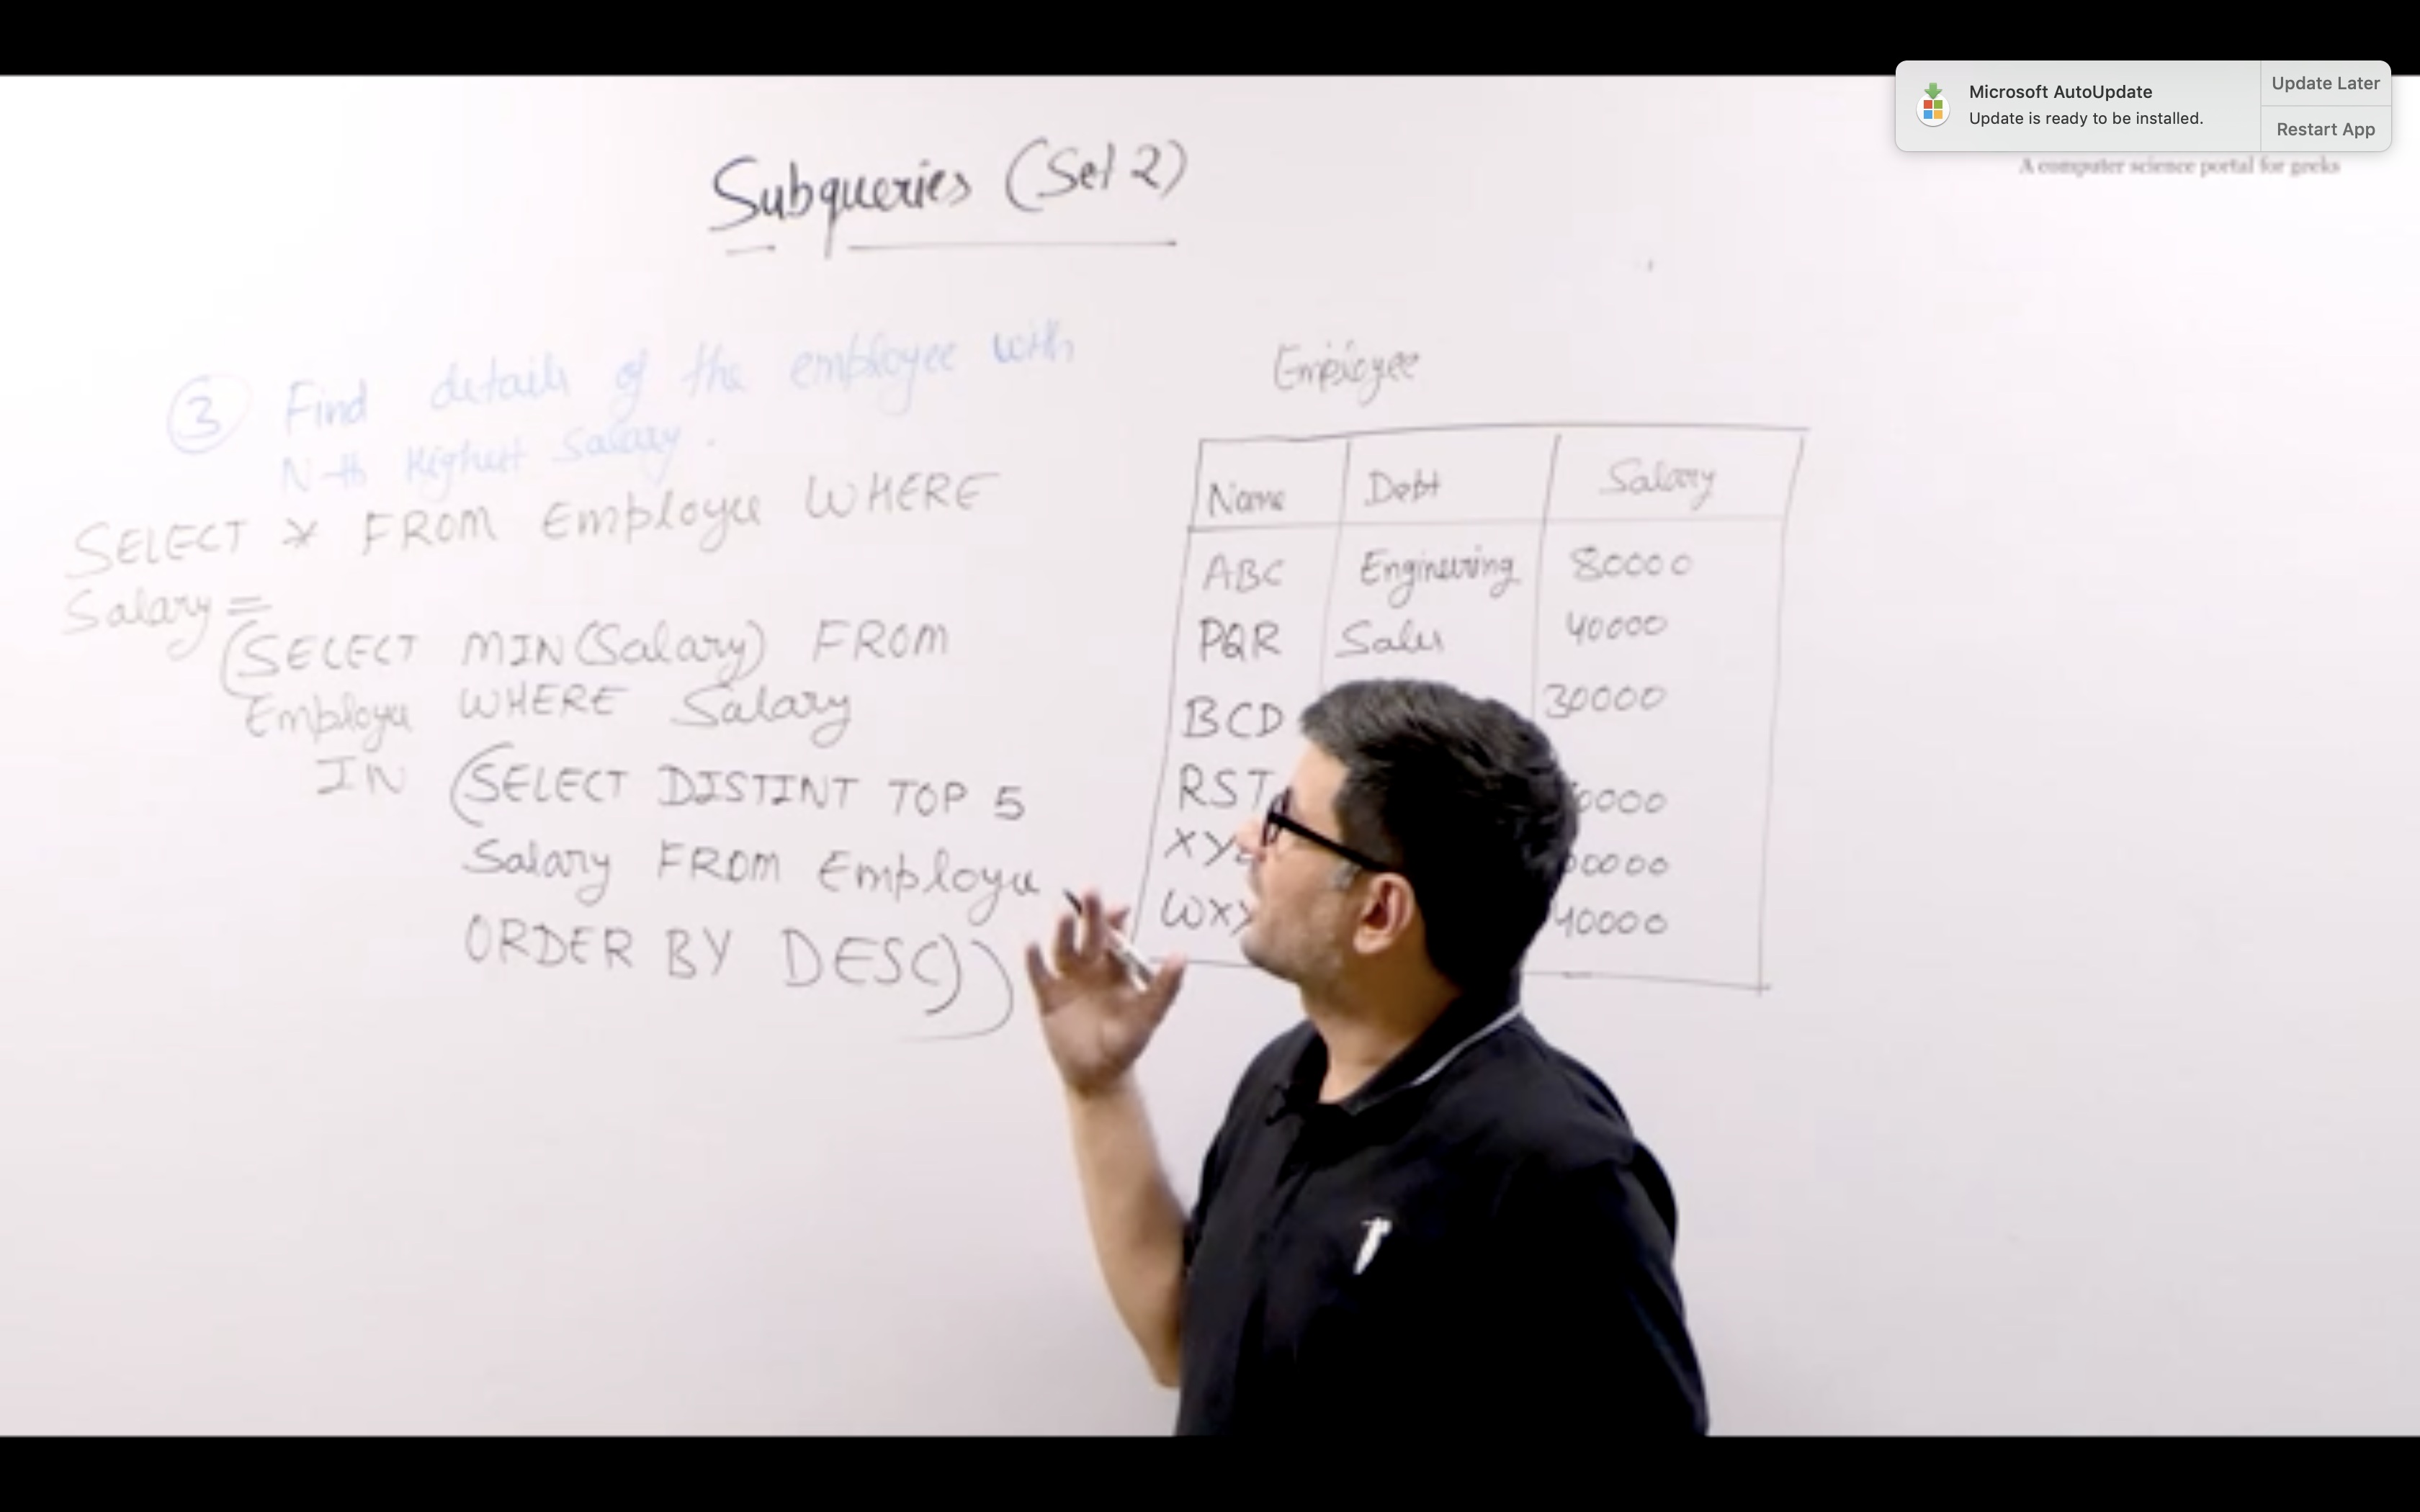 Microsoft AutoUpdate
Update is ready to be installed.
Update Later
Restart App
A computer science portal for geeks
Subqueries (Set 2)
3 Find details of the employee with
N-th Highest Salary.
SELECT * FROM Employee WHERE
Salary =
(SELECT MIN(Salary) FROM
Employee WHERE Salary
IN (SELECT DISTINT TOP 5
Salary FROM Employee
ORDER BY DESC))
Employee
Name Debt Salary
ABC Engineering 80000
PQR Sales 40000
BCD 30000
RST 0000
XY 0000
WX 40000